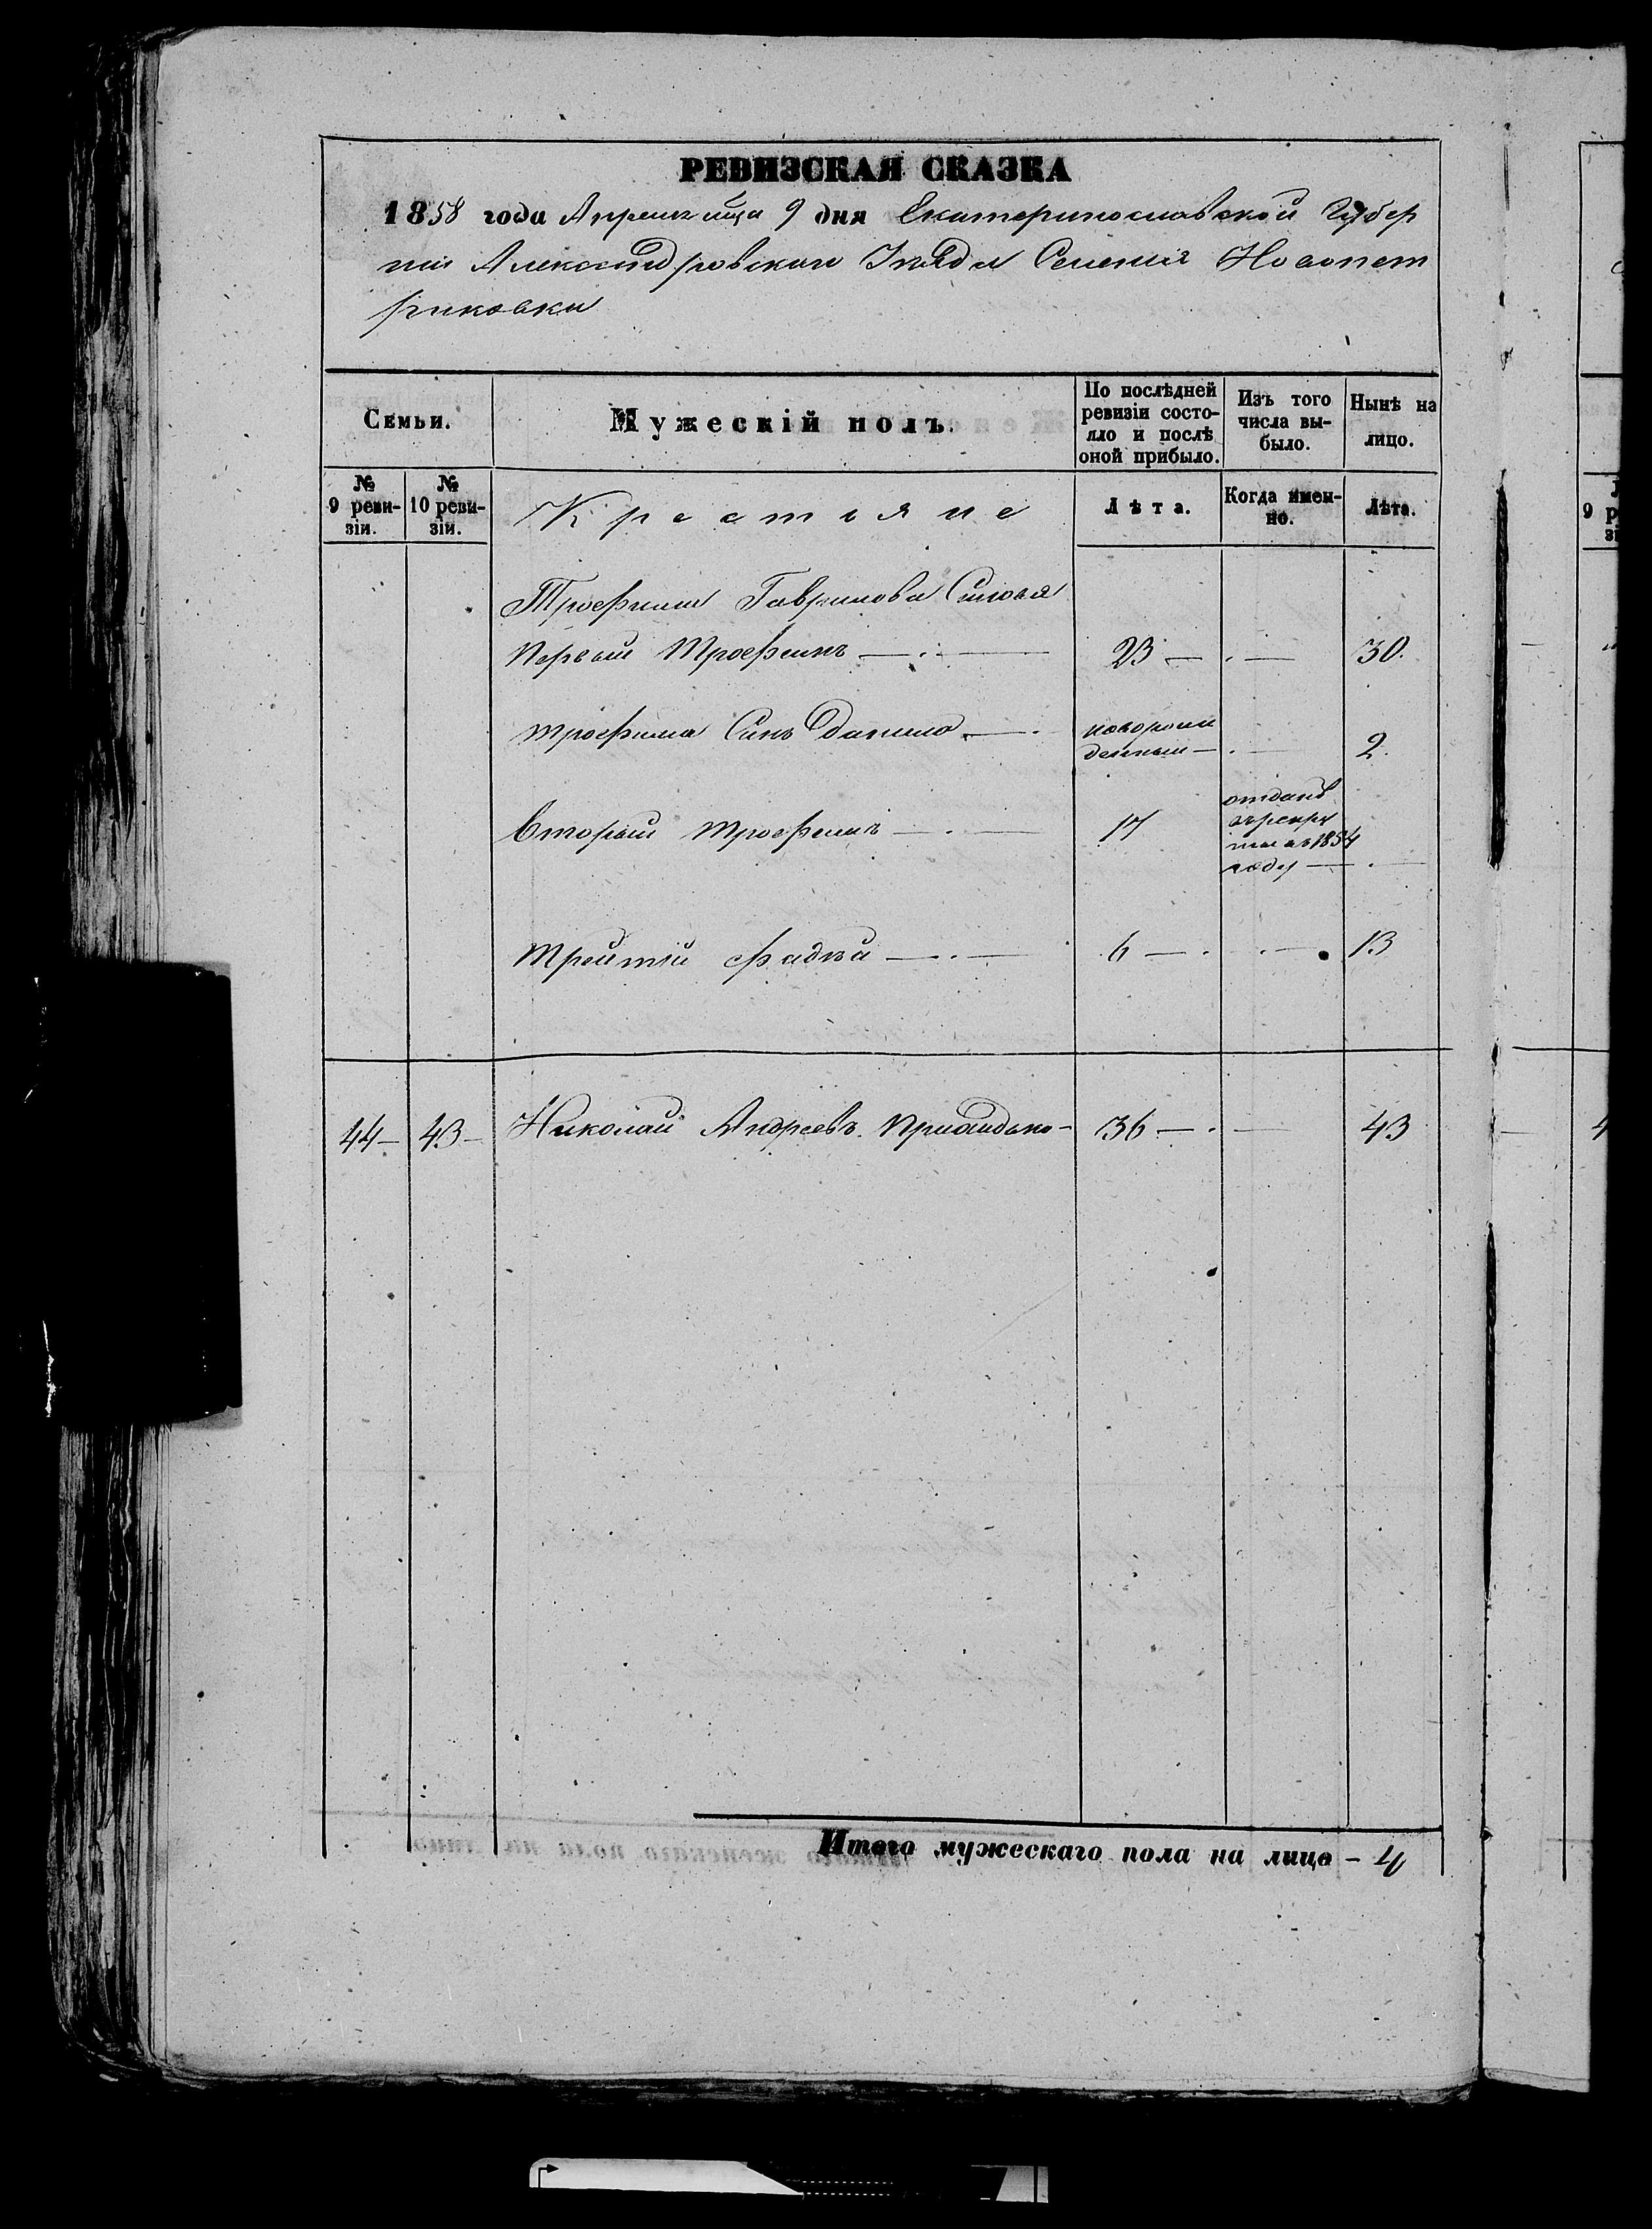 РЕВИЗСКАЯ СКАЗКА
1858 года Апреля мца 9 дня Екатеринославской Губер
ніи Александровскаго Уѣзда Селенія Новопет
риковки
Семьи.
Мужескій полъ.
По послѣдней ревизіи состо-
яло и послѣ
оной прибыло.
Изъ того
числа вы-
было.
Нынѣ на
лицо.
№
9 реви-
зіи.
№
10 реви-
зіи.
Крестьяне
Лѣта.
Когда имен-
но.
Лѣта.
Трофима Гаврилова Синовя
Первый Трофимъ — 23 — 30.
трофима Синъ Данило — новорож
денный — 2.
Вторый трофимъ — 17 отданъ
въ рекру
ты въ 1854
году —
Третій Фадѣй — 6 — 13
44 — 43 — Николай Андреевъ — 36 — 43
Итого мужескаго пола на лицо — 4